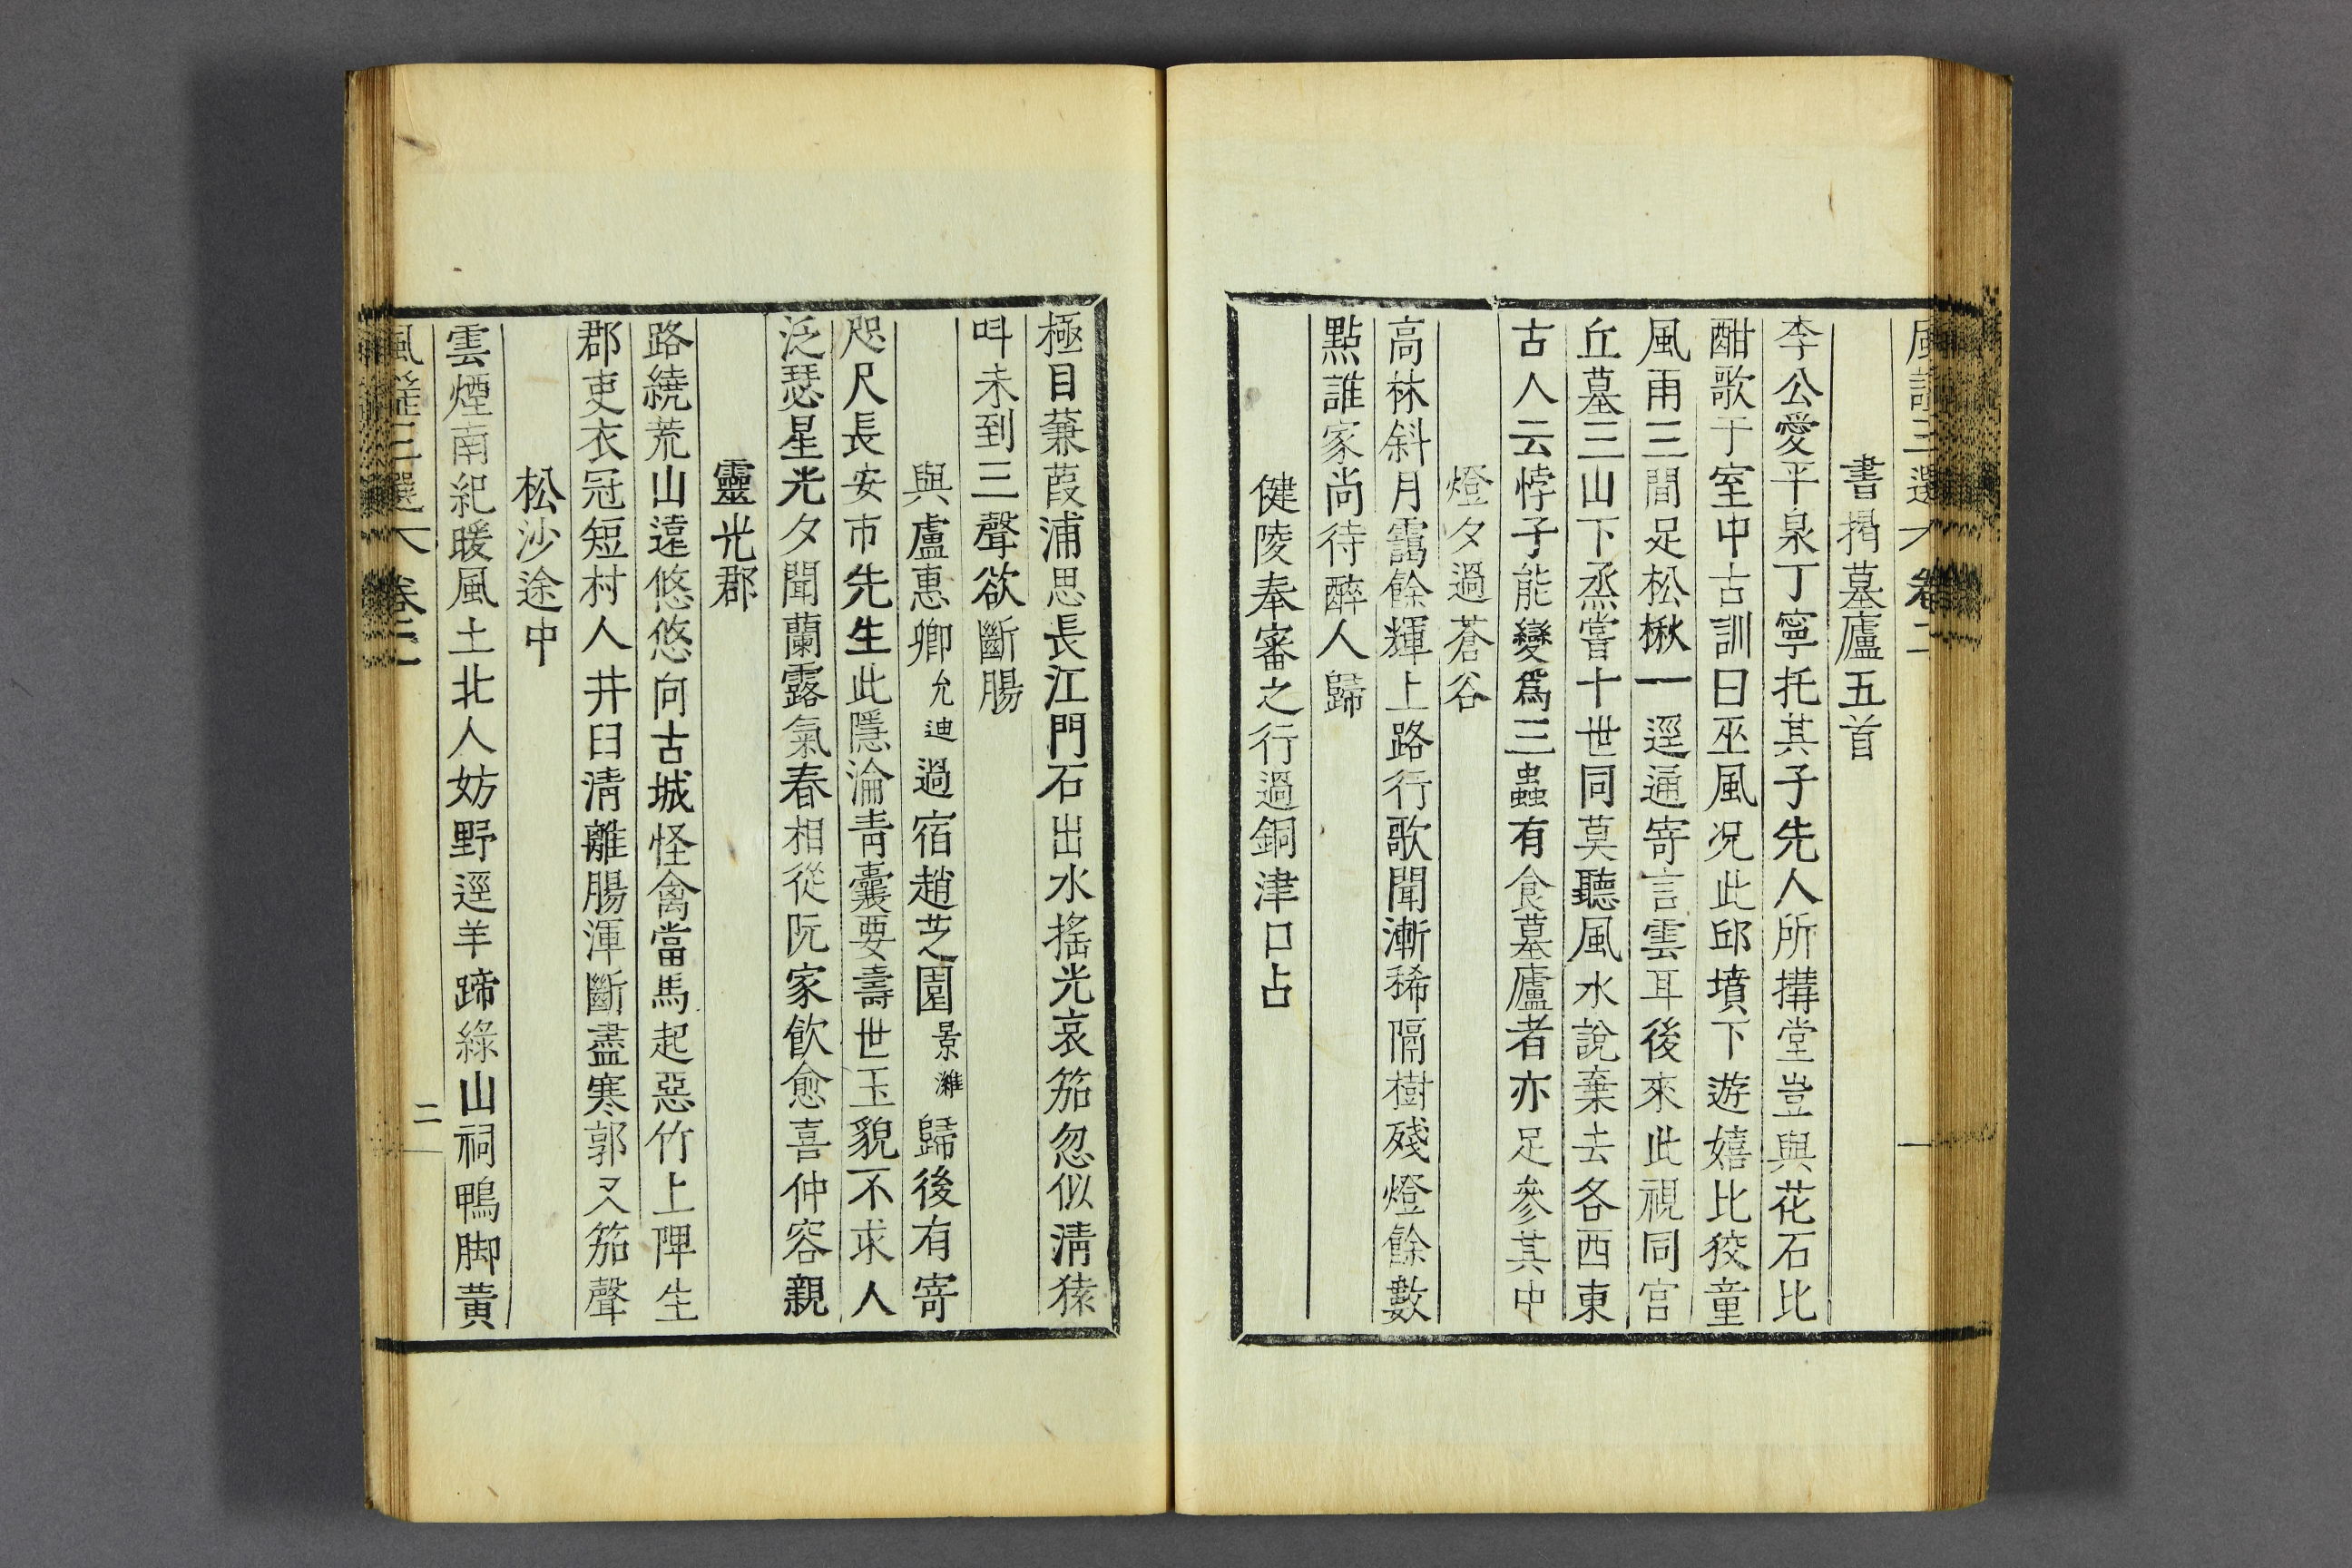 風謠三選 卷二
書揭墓廬五首
李公愛平泉丁寧托其子先人所搆堂豈與花石比
酣歌于室中古訓曰巫風况此邱墳下遊嬉比狡童
風雨三間足松楸一逕通寄言雲耳後來此視同宮
丘墓三山下烝嘗十世同莫聽風水說棄去各西東
古人云悖子能變爲三蟲有食墓廬者亦足參其中
燈夕過蒼谷
高林斜月靄餘輝上路行歌聞漸稀隔樹殘燈餘數
點誰家尚待醉人歸
健陵奉審之行過銅津口占
極目蒹葭浦思長江門石出水搖光哀笳忽似淸猿
呌未到三聲欲斷腸
與盧惠卿允迪過宿趙芝園景濰歸後有寄
咫尺長安市先生此隱淪靑囊要壽世玉貌不求人
泛瑟星光夕聞蘭露氣春相從阮家飮愈喜仲容親
靈光郡
路繞荒山遠悠悠向古城怪禽當馬起惡竹上陴生
郡吏衣冠短村人井臼淸離腸渾斷盡寒郭又笳聲
松沙途中
雲煙南紀暖風土北人妨野逕羊蹄綠山祠鴨脚黃
風謠三選 卷二 二